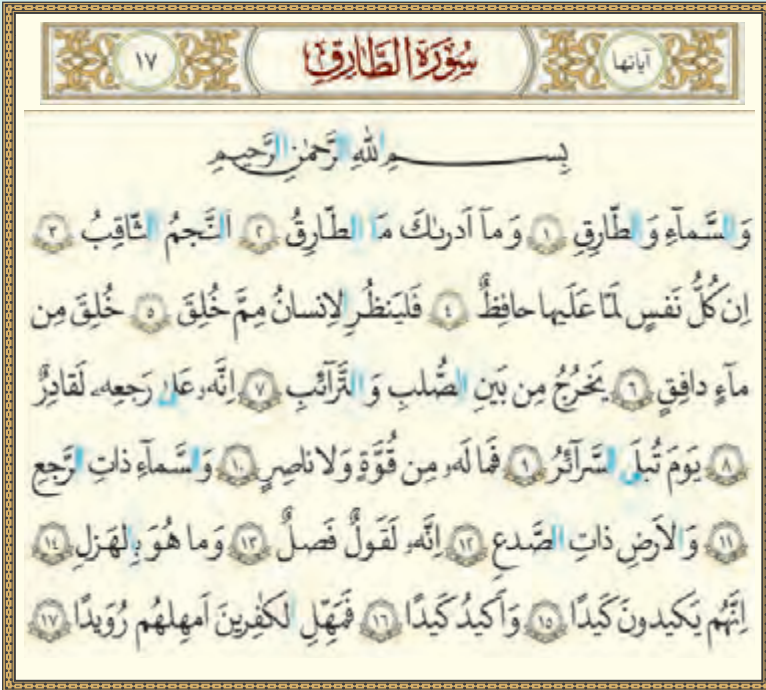 آیاتها سُورَةُ الطَّارِقِ ١٧
بِسمِ اللهِ الرَّحمٰنِ الرَّحیمِ
وَالسَّمآءِ وَالطّارِقِ ﴿١﴾ وَ مآ اَدرىٰكَ مَا الطّارِقُ ﴿٢﴾ اَلنَّجمُ الثّاقِبُ ﴿٣﴾
اِن كُلُّ نَفسٍ لَمّا عَلَیها حافِظٌ ﴿٤﴾ فَلیَنظُرِ الاِنسانُ مِمَّ خُلِقَ ﴿٥﴾ خُلِقَ مِن
مآءٍ دافِقٍ ﴿٦﴾ یَخرُجُ مِن بَینِ الصُّلبِ وَ التَّرآئِبِ ﴿٧﴾ اِنَّهۥ عَلىٰ رَجعِهۦ لَقادِرٌ
﴿٨﴾ یَومَ تُبلَى السَّرآئِرُ ﴿٩﴾ فَما لَهۥ مِن قُوَّةٍ وَ لا ناصِرٍ ﴿١٠﴾ وَالسَّمآءِ ذاتِ الرَّجعِ
﴿١١﴾ وَ الاَرضِ ذاتِ الصَّدعِ ﴿١٢﴾ اِنَّهۥ لَقَولٌ فَصلٌ ﴿١٣﴾ وَ ما هُوَ بِالهَزلِ ﴿١٤﴾
اِنَّهُم یَكیدونَ كَیدًا ﴿١٥﴾ وَ اَكیدُ كَیدًا ﴿١٦﴾ فَمَهِّلِ الكٰفِرینَ اَمهِلهُم رُوَیدًا ﴿١٧﴾